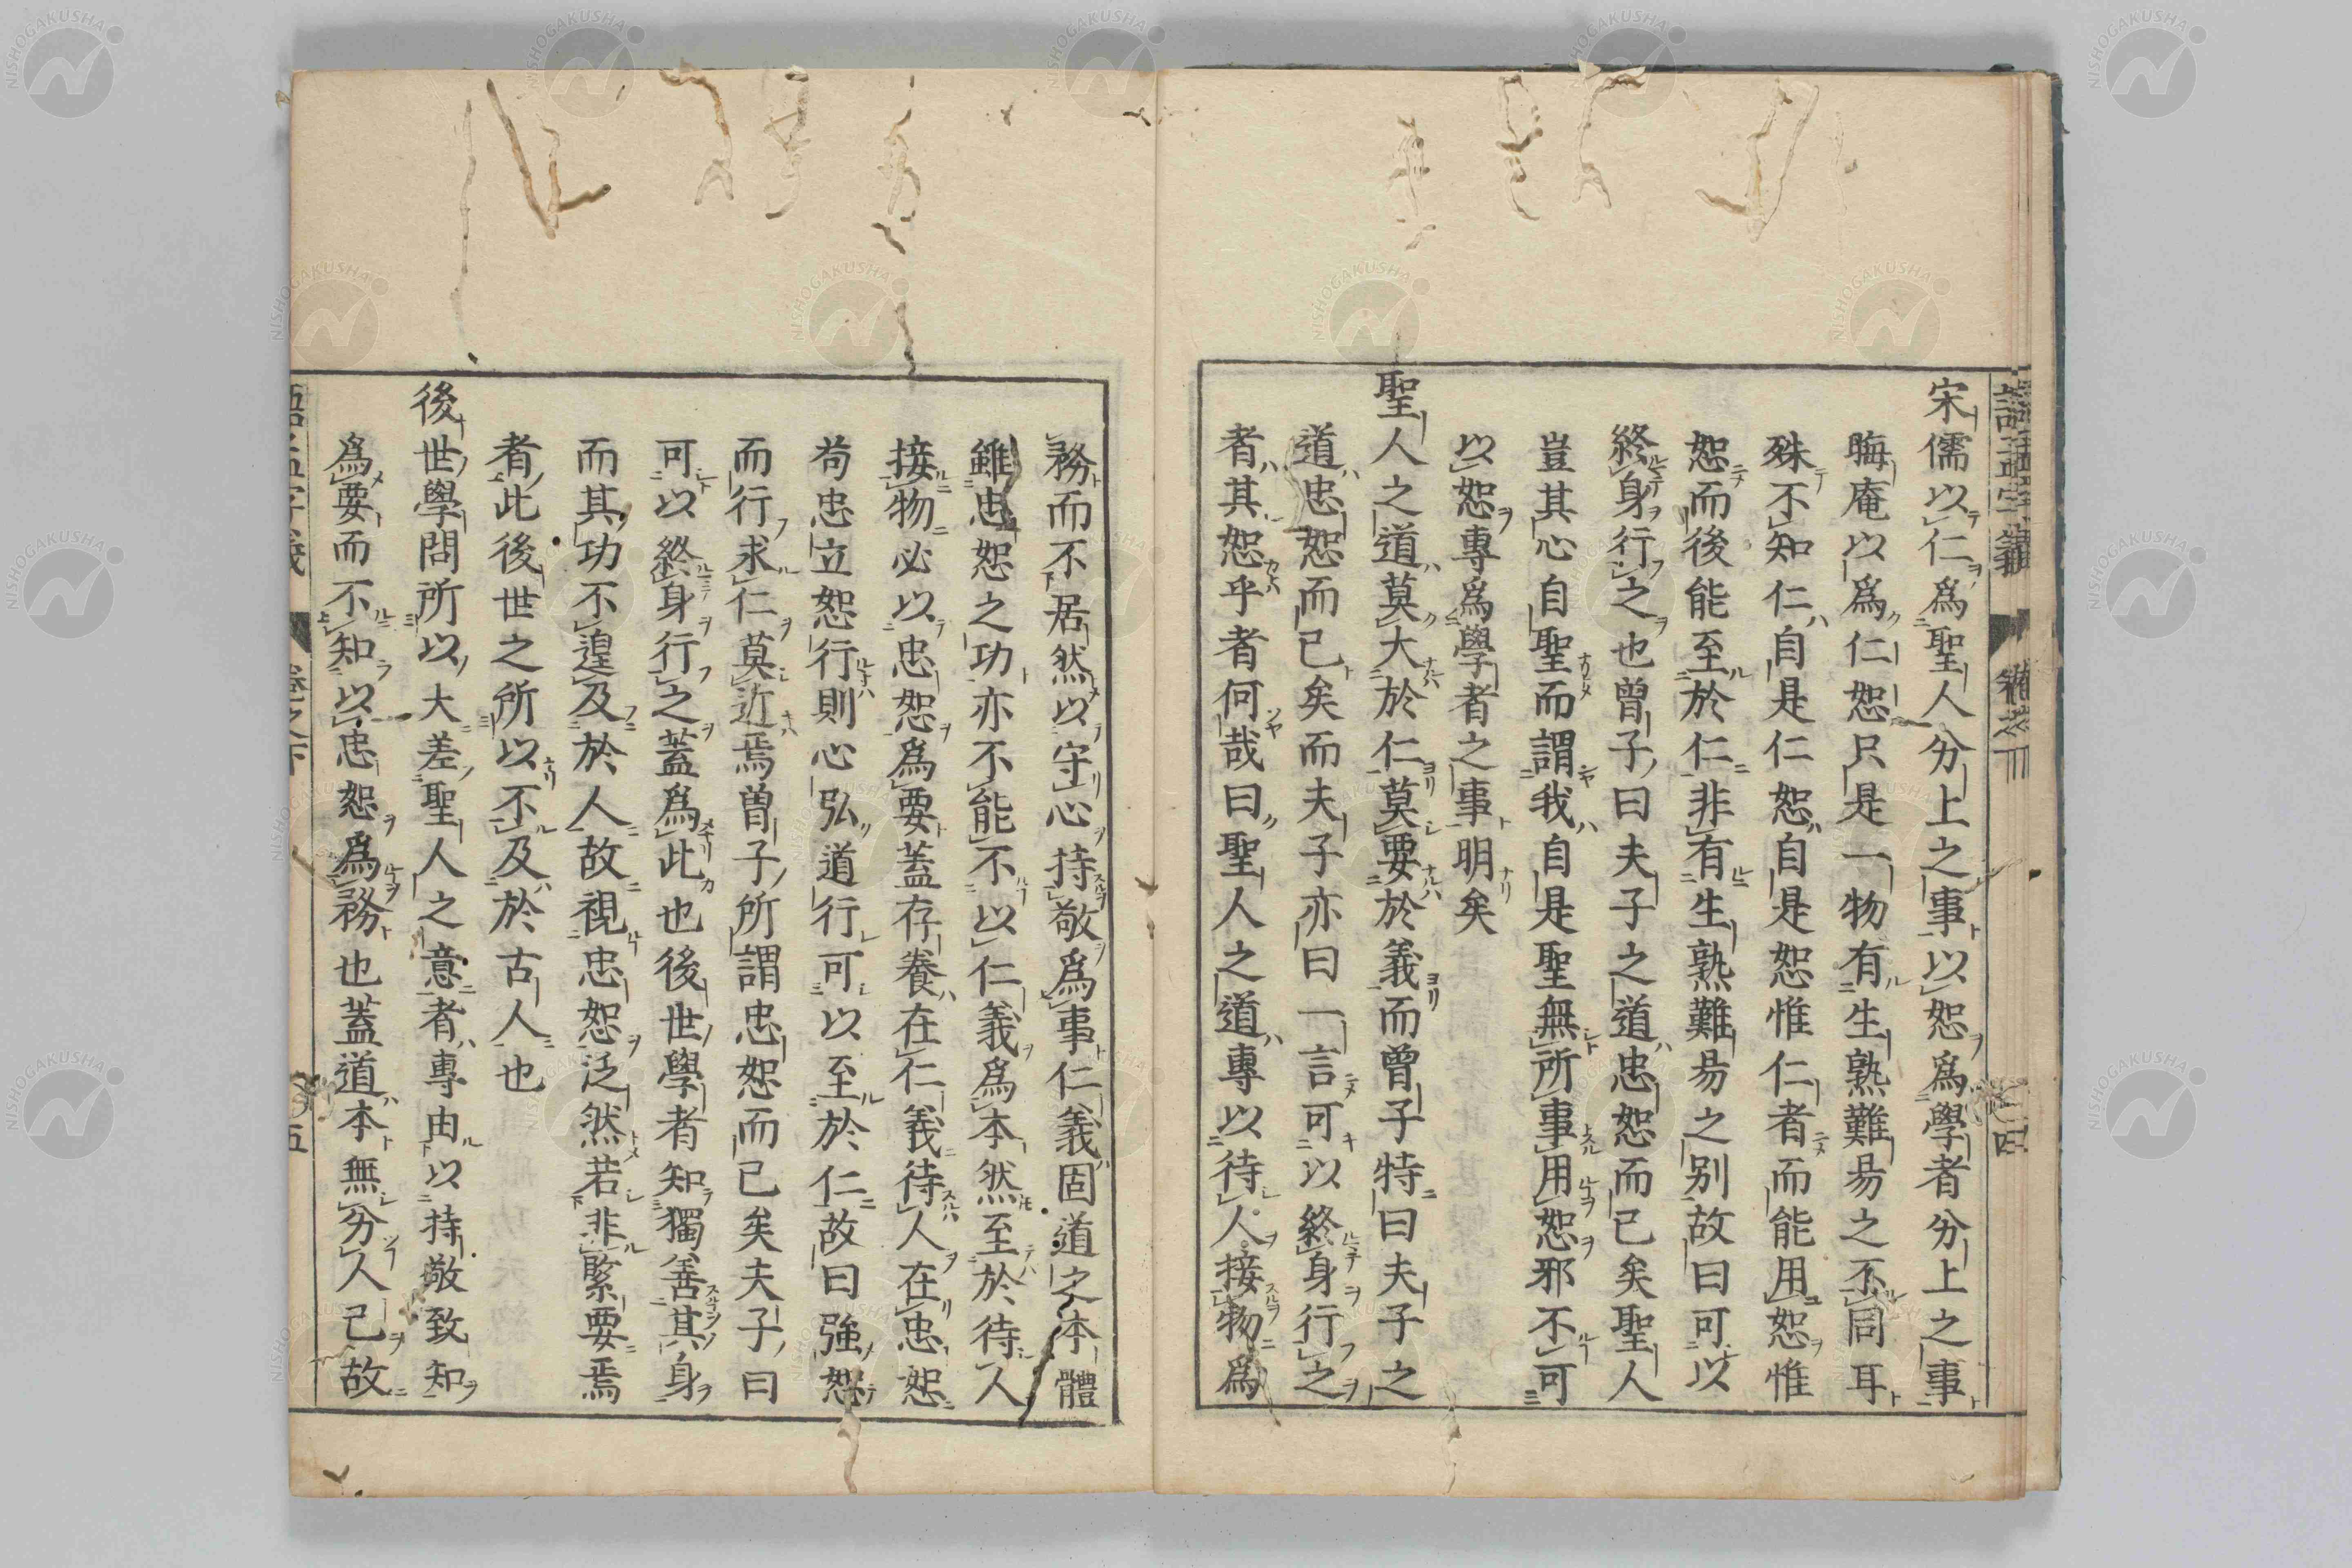 宋儒以仁爲聖人分上之事以恕爲學者分上之事
晦庵以爲仁恕只是一物有生熟難易之不同耳
殊不知仁自是仁恕自是恕惟仁者而能用恕惟
恕而後能至於仁非有生熟難易之別故曰可以
終身行之也曾子曰夫子之道忠恕而已矣聖人
豈其心自聖而謂我自是聖無所事用恕邪不可
以恕專爲學者之事明矣
聖人之道莫大於仁莫要於義而曾子特曰夫子之
道忠恕而已矣而夫子亦曰一言可以終身行之
者其恕乎者何哉曰聖人之道專以待人接物爲
務而不居然以守心持敬爲事仁義固道之本體
雖忠恕之功亦不能不以仁義爲本然至於待人
接物必以忠恕爲要蓋存養在仁義待人在忠恕
苟忠立恕行則心弘道行可以至於仁故曰強恕
而行求仁莫近焉曾子所謂忠恕而已矣夫子曰
可以終身行之蓋爲此也後世學者知獨善其身
而其功不遑及於人故視忠恕泛然若非緊要焉
者此後世之所以不及於古人也
後世學問所以大差聖人之意者專由以持敬致知
爲要而不知以忠恕爲務也蓋道本無分人己故
語孟字義 卷之下 五
NISHOGAKUSHA